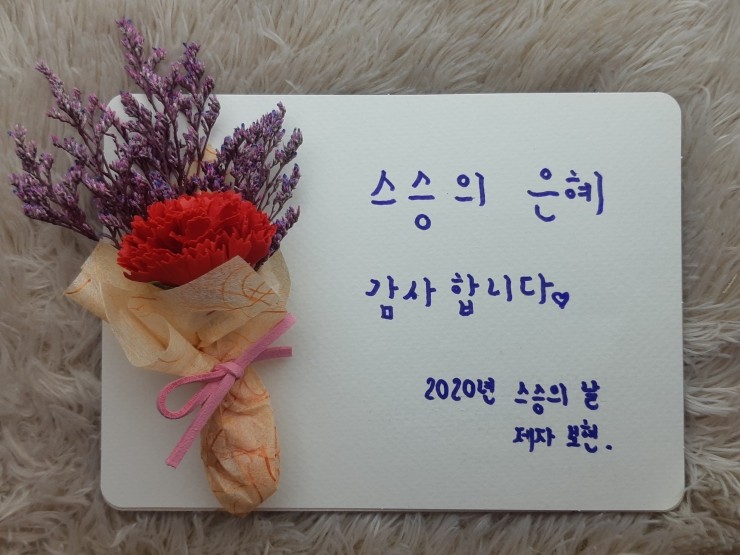 스승의 은혜
감사합니다♥
2020년 스승의 날
제자 보현.